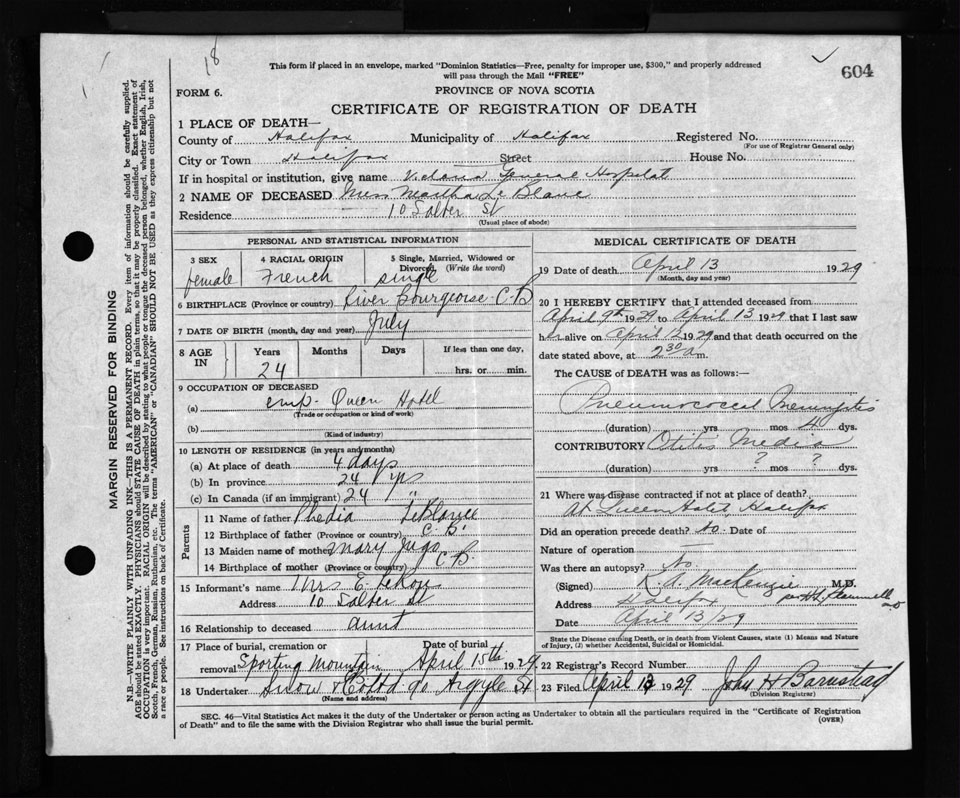 18
This form if placed in an envelope, marked "Dominion Statistics—Free, penalty for improper use, $300," and properly addressed
will pass through the Mail "FREE"
604
FORM 6.
PROVINCE OF NOVA SCOTIA
CERTIFICATE OF REGISTRATION OF DEATH
1 PLACE OF DEATH—
County of Halifax Municipality of Halifax Registered No.
(For use of Registrar General only)
City or Town Halifax Street House No.
If in hospital or institution, give name Victoria General Hospital
2 NAME OF DECEASED Miss Martha Le Blanc
Residence 10 Salter St
(Usual place of abode)
PERSONAL AND STATISTICAL INFORMATION
3 SEX 4 RACIAL ORIGIN 5 Single, Married, Widowed or
Divorced (Write the word)
female French single
6 BIRTHPLACE (Province or country) River Bourgeoise C.B
7 DATE OF BIRTH (month, day and year) July
8 AGE IN Years Months Days If less than one day,
24 hrs. or min.
9 OCCUPATION OF DECEASED
(a) emp. Queen Hotel
(Trade or occupation or kind of work)
(b)
(Kind of industry)
10 LENGTH OF RESIDENCE (in years and months)
(a) At place of death 4 days
(b) In province 24 yrs
(c) In Canada (if an immigrant) 24 "
Parents
11 Name of father Phedia LeBlance
12 Birthplace of father (Province or country) C.B.
13 Maiden name of mother Mary Jugo
14 Birthplace of mother (Province or country) C.B.
15 Informant's name Mrs E.
Address 10 Salter St
16 Relationship to deceased aunt
17 Place of burial, cremation or Date of burial
removal Sporting Mountain April 15th 1929
18 Undertaker Snow & Co Ltd 90 Argyle St
(Name and address)
MEDICAL CERTIFICATE OF DEATH
19 Date of death April 13 1929
(Month, day and year)
20 I HEREBY CERTIFY that I attended deceased from
April 9th 1929 to April 13 1929 that I last saw
her alive on April 12 1929 and that death occurred on the
date stated above, at 2 30 a m.
The CAUSE of DEATH was as follows:—
Pneumococcal Meningitis
(duration) yrs mos 4 dys.
CONTRIBUTORY Otitis Media
(duration) yrs ? mos ? dys.
21 Where was disease contracted if not at place of death?
At Queen Hotel, Halifax
Did an operation precede death? No. Date of
Nature of operation
Was there an autopsy? No.
(Signed) K. A. MacKenzie M.D.
Address Halifax
Date April 13/29
State the Disease causing Death, or in death from Violent Causes, state (1) Means and Nature
of Injury, (2) whether Accidental, Suicidal or Homicidal.
22 Registrar's Record Number
23 Filed April 13 1929 John H Barnstead
(Division Registrar)
SEC. 46—Vital Statistics Act makes it the duty of the Undertaker or person acting as Undertaker to obtain all the particulars required in the "Certificate of Registration
of Death" and to file the same with the Division Registrar who shall issue the burial permit.
(OVER)
MARGIN RESERVED FOR BINDING
N.B.—WRITE PLAINLY WITH UNFADING INK—THIS IS A PERMANENT RECORD. Every item of information should be carefully supplied.
AGE should be stated EXACTLY. PHYSICIANS should STATE CAUSE OF DEATH in plain terms, so that it may be properly classified. Exact statement of
OCCUPATION is very important. RACIAL ORIGIN will be described by stating to what people or tongue the deceased person belonged, whether English, Irish,
Scotch, French, German, Russian, Ruthenian, etc. The terms "AMERICAN" or "CANADIAN" SHOULD NOT BE USED as they express citizenship but not
a race or people. See instructions on back of Certificate.